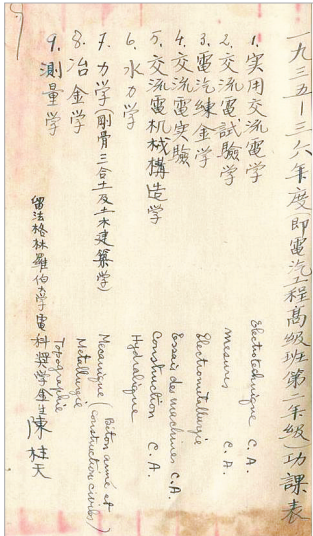 一九三五—三六年度(即電汽工程高級班第二年級)功課表
1. 实用交流電学 Electrotechnique C. A.
2. 交流電試驗学 mesures C. A.
3. 電汽練金学 Electrometallurgie
4. 交流電实驗 Essais de machines C. A.
5. 交流電机械構造学 Construction C. A.
6. 水力学 Hydraulique
7. 力学(剛骨三合土及土木建築学) Mecanique (Béton armé et Construction civiles)
8. 冶金学 Métallurgie
9. 測量学 Topographie
留法格林羅伯大学電科奨学金生陳柱天